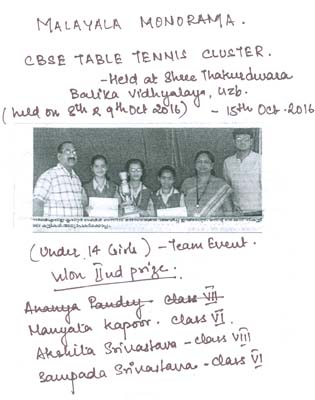 MALAYALA MONORAMA.
CBSE TABLE TENNIS CLUSTER.
-Held at Shree Thakurdwara
Balika Vidhyalaya, Gzb.
(held on 8th & 9th Oct 2016) - 15th Oct. 2016
(Under 14 Girls) - Team Event.
Won IInd prize:
Ananya Pandey - class VII
Mangala Kapoor. class VI.
Akshita Srivastava - class VIII
Sampada Srivastava - class VI